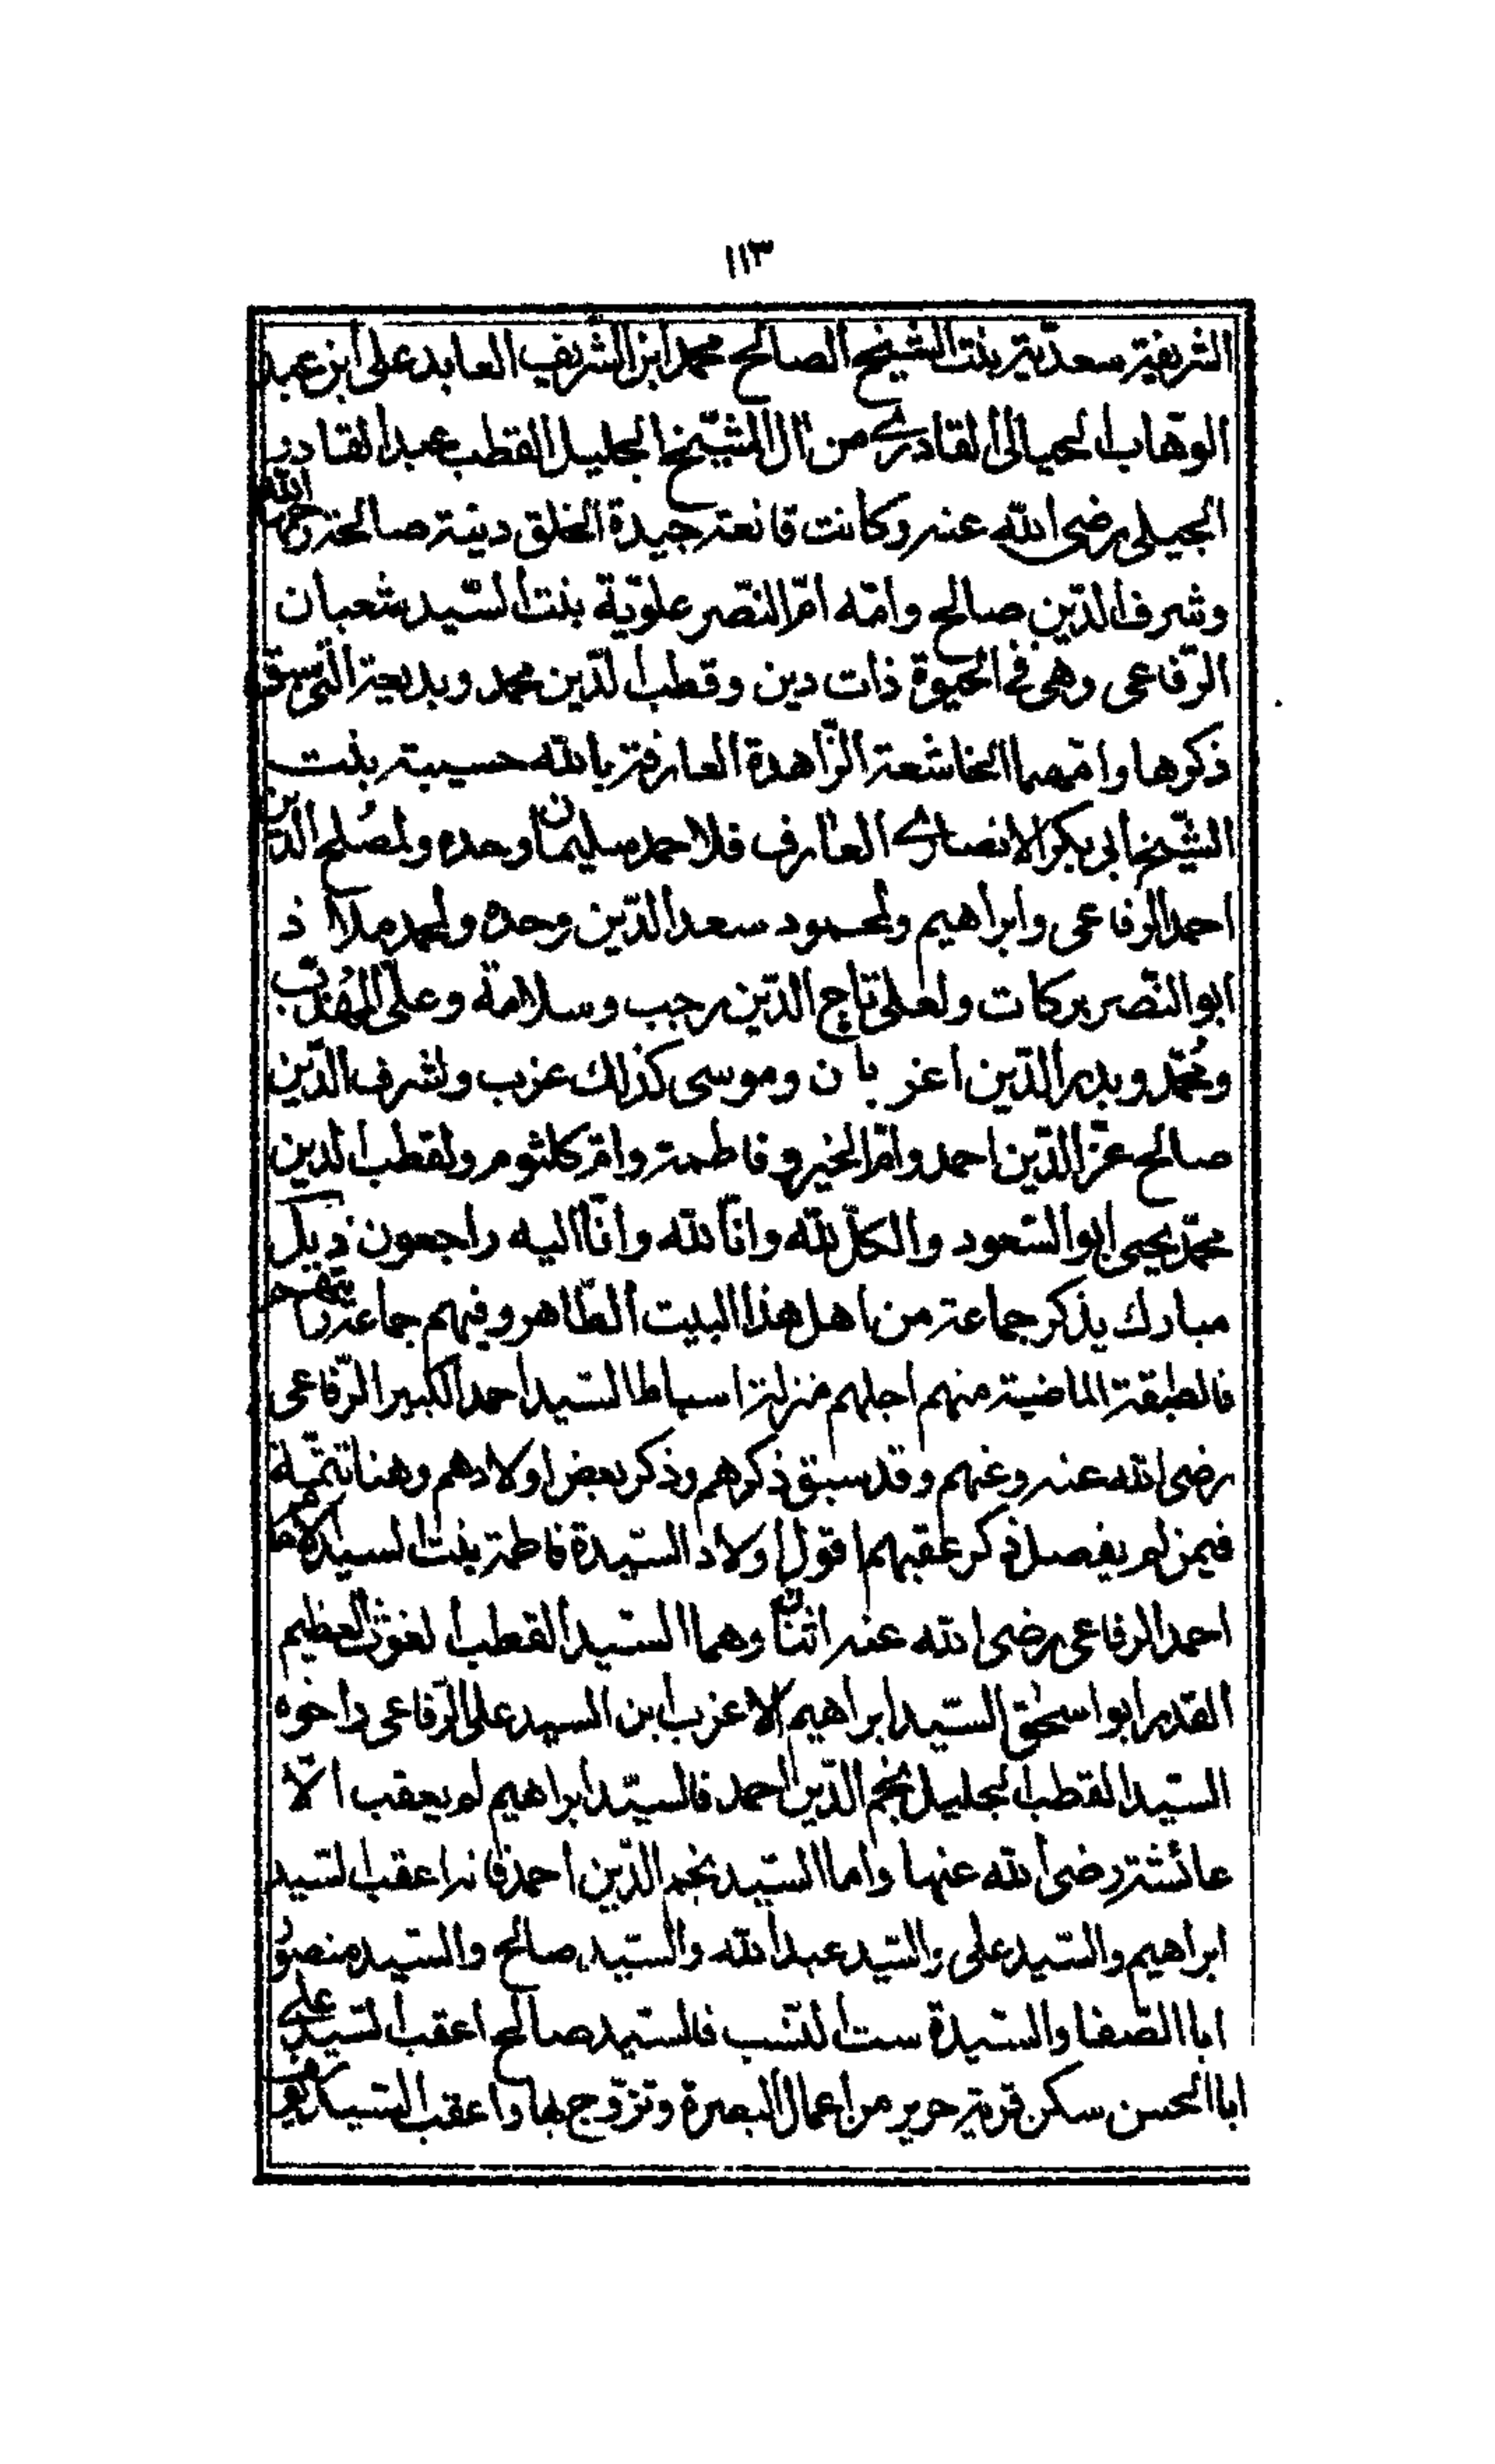 ١١٣
الشريفة سعديّة بنت الشيخ الصالح محمد ابن الشريف العابد على ابن عبد
الوهاب الحيالى القادرى من آل الشيخ الجليل القطب عبد القادر
الجيلى رضى الله عنه وكانت قانعة جيدة الخلق دينة صالحة رحمها الله
وشرف الدّين صالح وامّه امّ النّصر علويّة بنت السّيد شعبان
الرّفاعى وهى فى الحيوة ذات دين وقطب الدّين محمد وبديعة التى سبق
ذكرها وامّهما الخاشعة الزّاهدة العارفة بالله حسيبة بنت
الشّيخ ابى بكر الانصارى العارف فلاحمد سليمان وحده ولمصلح الدين
احمد الرفاعى وابراهيم ولمحمود سعد الدّين وحده ولمحمد ملاذ
ابو النّصر بركات ولعلى تاج الدّين رجب وسلامة وعلىّ المهذّب
ومُحمّد وبدر الدّين اعزبان وموسى كذلك عزب ولشرف الدّين
صالح عزّ الدّين احمد وامّ الخير وفاطمة وامّ كلثوم ولقطب الدين
محمّد يحيى ابو السّعود والكلّ لله وانّا لله وانّا اليه راجعون ذيل
مبارك يذكر جماعة من اهل هذا البيت الطّاهر وفيهم جماعة
فالطبقة الماضية منهم اجلهم منزلة اسباط السّيد احمد الكبير الرّفاعى
رضى الله عنه وعنهم وقد سبق ذكرهم وذكر بعض اولادهم وهنا تتمّة
فيمن لم يفصل ذكر عقبهم اقول اولاد السّيدة فاطمة بنت السيد
احمد الرفاعى رضى الله عنه اثنان وهما السّيد القطب الغوث العظيم
القدر ابو اسحق السّيد ابراهيم الاعزب ابن السيد على الرّفاعى واخوه
السّيد القطب الجليل نجم الدّين احمد فالسيّد ابراهيم لم يعقب الّا
عائشة رضى الله عنها واما السّيد نجم الدّين احمد فانه اعقب السّيد
ابراهيم والسّيد على والسّيد عبد الله والسّيد صالح والسّيد منصور
ابا الصّفا والسّيدة ست النّسب فالسّيد صالح اعقب السّيد على
ابا الحسن سكن قرية حرير من اعمال البصرة وتزوّج بها واعقب السّيد